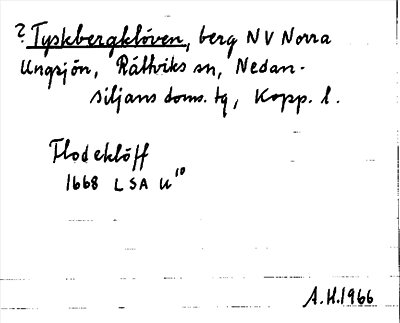 ? Tyskbergklöven, berg NV Norra
Ungsjön, Rättviks sn, Nedan-
siljans doms. tg, Kopp. l.
Flodeklöff
1668 LSA U¹⁰
A.H. 1966